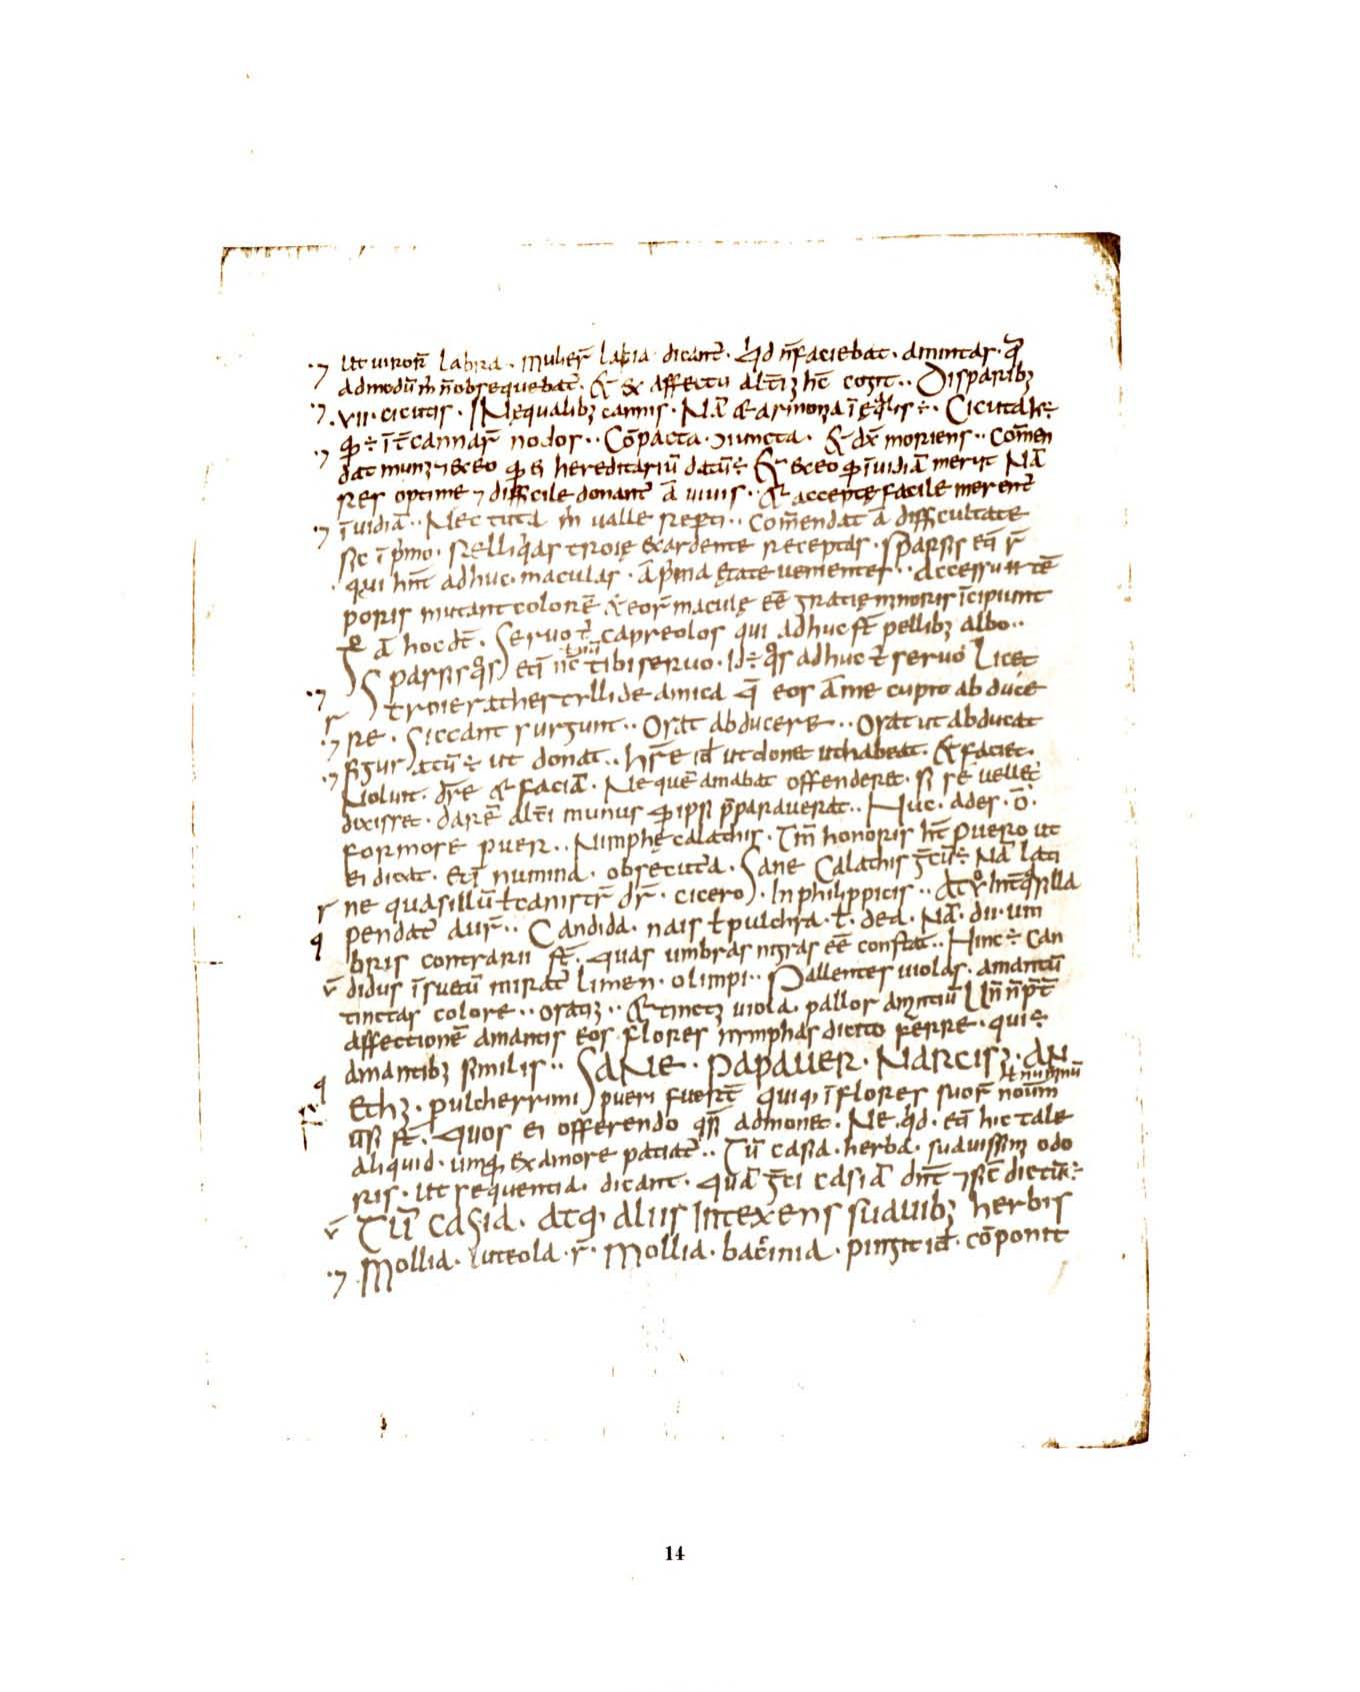 ⁊ ut uiror̄ labra · mulier̄ labia · dicant̄ · qd n̄ faciebat · amintas · q̄
admodū m̄ n̄ obsequebat̄ · & ex affectu alt̄iꝫ hc̄ cogit ·· Disparibꝫ
⁊ · VII · cicutis · Inęqualibꝫ cannis · Nā & armonia
nodos ·· Cōpacta · iuncta · & dx̄ moriens ·· cōmen
⁊ dat munꝰ ⁊ exeo hereditariū datū ÷ & exeo īuidiā meruit Nā
res optime ⁊ difficile donant̄ ā uiuis ·· & acceptę facile merent̄
⁊ īuidiā ·· Nec tuta m̄ ualle rep̄ti ·· cōmendat ā difficultate
sic ī p̄mo · relliq̇as troię ex ardente receptas · sparsis etā r̄
qui hn̄t adhuc · maculas · ā p̄ma ętate uenientes ·· accessu u tē
poris mutant colorē & eor̄ maculę eē gratię minoris īcipiunt
ā hoc dt̄ · Seruo t̄ capreolos qui adhuc st̄ pellibꝫ albo ··
Sparsis etī nc̄ tibi seruo · Id ÷ qos adhuc t̄ seruo Licet
⁊ troie rathestyllide amica q̄ eos ā me cupit abduce
r
⁊ re · Siccant surgunt ·· Orat abducere ·· Orat ut abducat
⁊ figuratū ÷ ut donat ·· hr̄e id ut donet ut habeat · & faciet ·
uolunt · dr̄e & faciā · Ne quē amabat offenderet · si se uellet
dixisset · darē alt̄i munus ipsi p̄parauerat ·· Huc · ades · ō ·
formose puer ·· Nimphę calathis · Tm̄ honoris hc̄ puero ut
ei dicat · etī numina · obsecutura · Sane calathis gc̄ū ÷ Nā lati
r ne quasillū ł canistr̄ dr̄ · cicero · In philippicis ·· 
q pendat̄ aur̄ ·· Candida · nais ł pulchra · ł · dea · Nā · dii · um
bris contrarii st̄ · quas umbras nigras eē constat ·· Hinc ÷ can
v̄ didus īsuetū mirat̄ limen · olimpi ·· Pallentes uiolas · amantū
tinctas colore ·· oratiꝰ ·· & tinctꝰ uiola · pallor amantiū
affectionē amantis eos · flores nymphas dicito ferre · qui ÷
amantibꝫ similis ·· Sane · papauer · Narcisꝰ · an
q ethꝫ · pulcherrimi pueri fuert̄ quiqꝫ ī flores suor̄ noīm
ł numinū
uīsi st̄ · quos ei offerendo qͣsi admonet · Ne qd · etā hic tale
aliquid · umqꝫ ex amore patiat̄ ·· Tū casia · herba · suauissim odo
ris · ut sequentia · dicant · quā gc̄i casiā dn̄t ⁊ sic̄ dictur̄ ÷
v̄ Tū casia · atqꝫ aliis Intexens suauibꝫ herbis
⁊ Mollia · luteola · r̄ · Mollia · baccinia · pingit id · cōponit
14